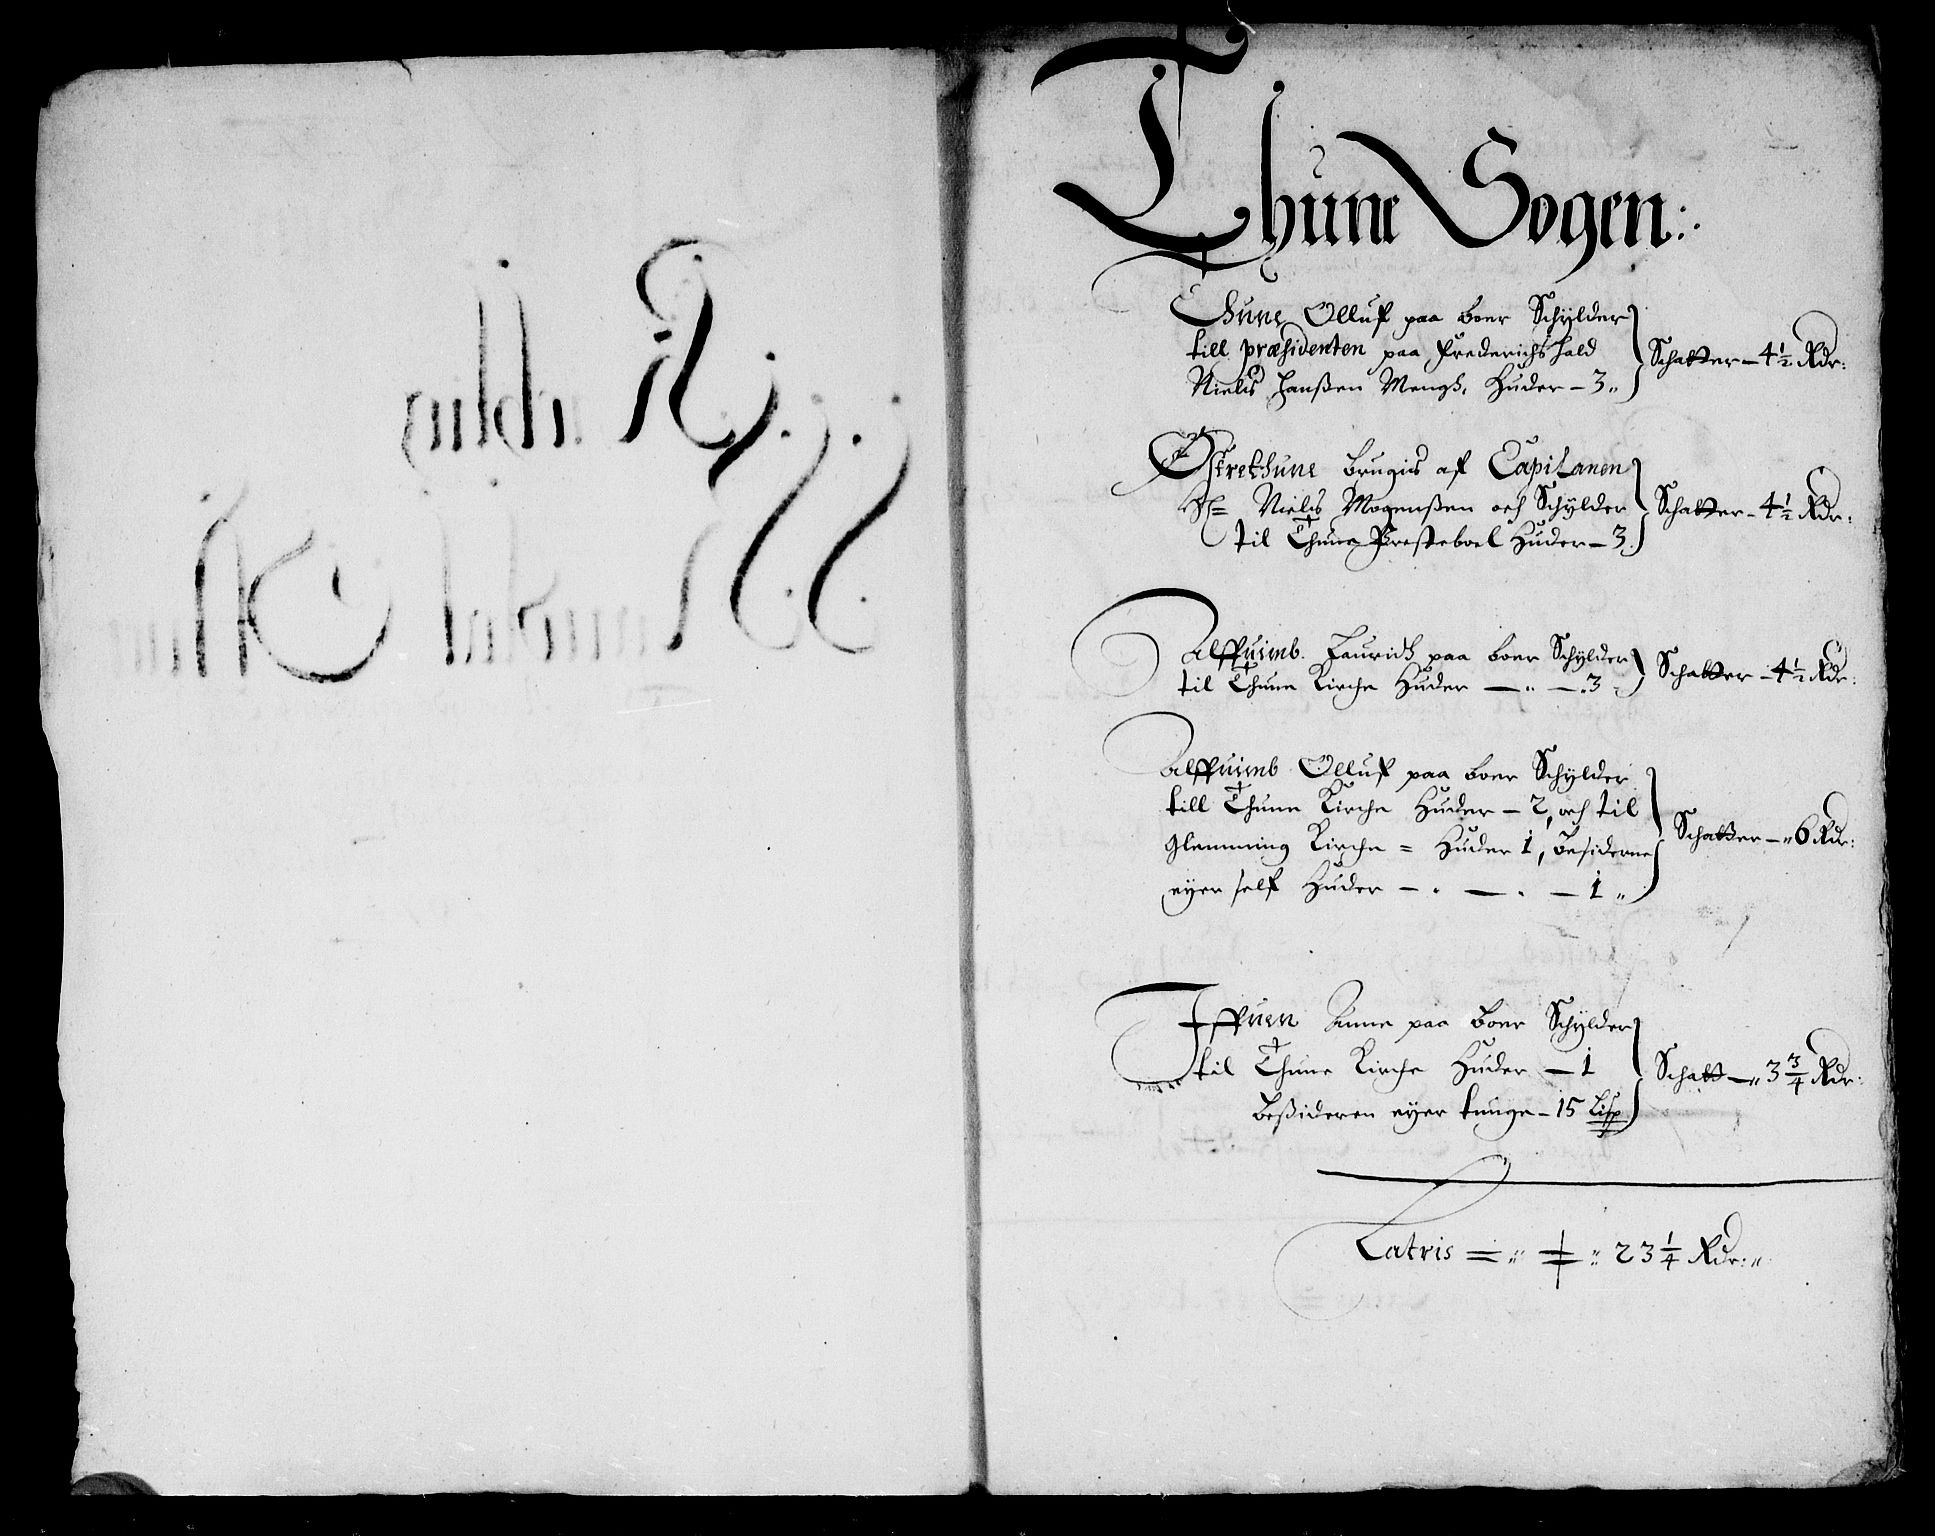 Thune Sogen:
Thune Olluf paa boer Schylder
till præsidenten paa Frederichshald
Nielß Hanßen Mengß. Huder – 3„
Schatter – 4 1/2 Rdr:
Østrethune brugis af Capitanen
Nielß Mogenßen och Schylder
til Thune Presteboel Huder – 3.
Schatter – 4 1/2 Rdr:
Alffuimb. Lauridß paa boer Schylder
til Thune Kirche Huder – „ – „3
Schatter – 4 1/2 Rdr:
Alffuimb Olluf paa boer Schylder
till Thune Kirche Huder – 2, och til
Glemming Kirche = Huder 1, besiderne
eyer self Huder – . – . – 1„
Schatter – „6 Rdr:
Iffuen Anne paa boer Schylder
til Thune Kirche Huder – 1
beßideren eyer tunge – 15 Lisp
Schatt – „ 3 3/4 Rdr:
Latris = „ = „ 23 1/4 Rdr: „